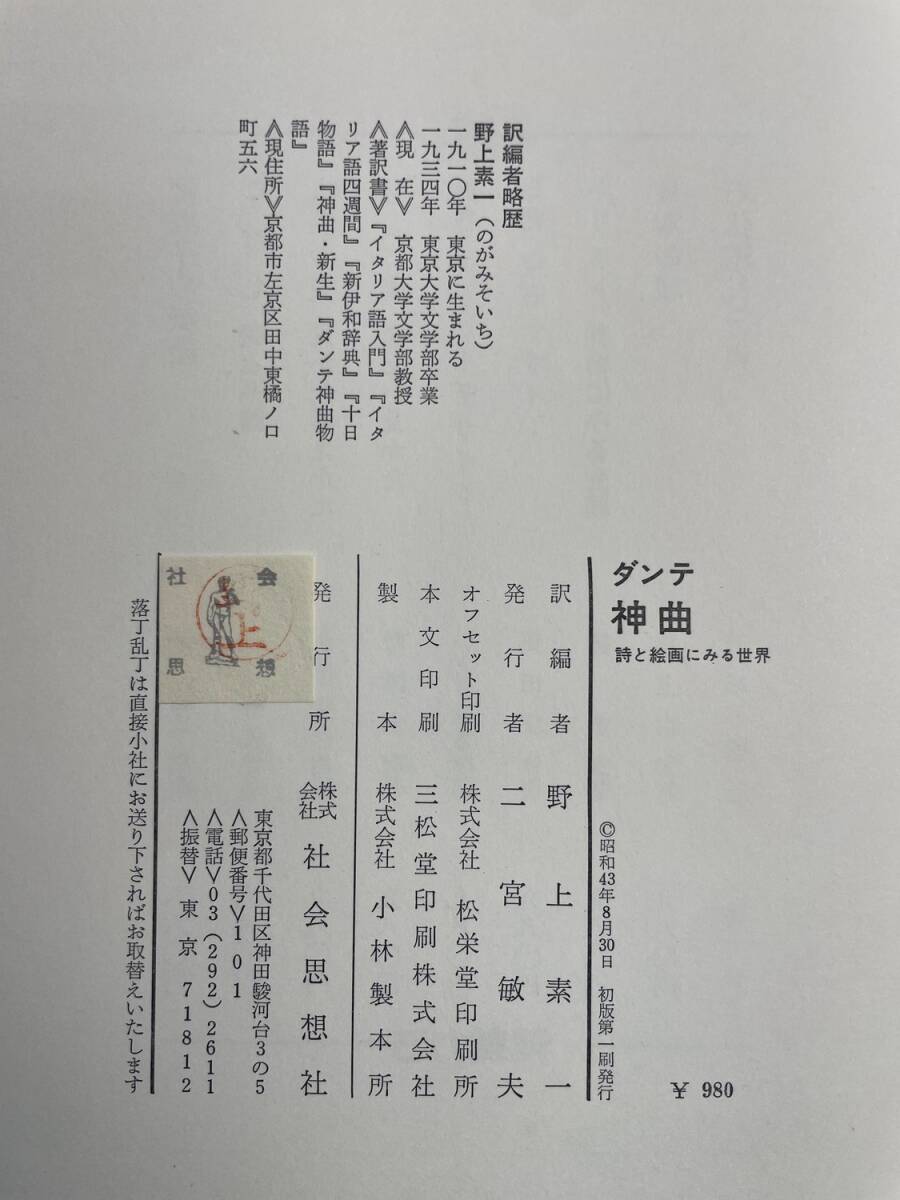 訳編者略歴
野上素一(のがみそいち)
一九一〇年 東京に生まれる
一九三四年 東京大学文学部卒業
<現 在> 京都大学文学部教授
≪著訳書≫『イタリア語入門』『イタ
リア語四週間』『新伊和辞典』『十日
物語』『神曲・新生』『ダンテ神曲物
語』
≪現住所≫京都市左京区田中東橘ノ口
町五六
ダンテ
神曲
詩と絵画にみる世界
¥ 980
©昭和43年8月30日 初版第一刷発行
訳編者 野上素一
発行者 二宮敏夫
オフセット印刷 株式会社 松栄堂印刷所
本文印刷 三松堂印刷株式会社
製本 株式会社 小林製本所
発行所 株式会社 社会思想社
東京都千代田区神田駿河台3の5
<郵便番号>101
<電話>03(292)2611
<振替>東京 71812
社会
思想
上
落丁乱丁は直接小社にお送り下さればお取替えいたします